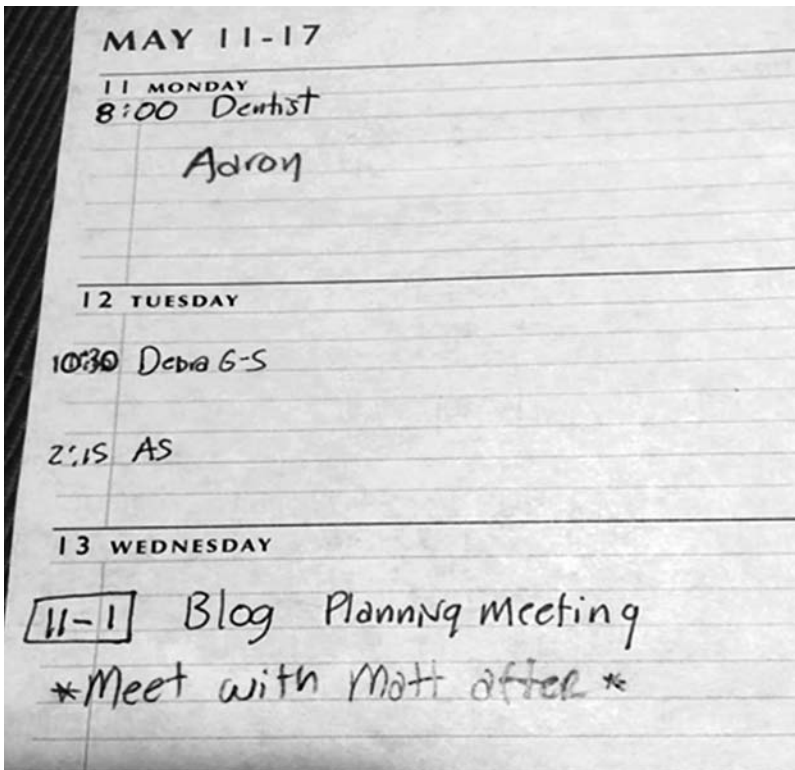 MAY 11-17
11 MONDAY
8:00 Dentist
Adron
12 TUESDAY
10:30 Debra G-S
2:15 AS
13 WEDNESDAY
11-1 Blog Planning Meeting
*Meet with Matt after*